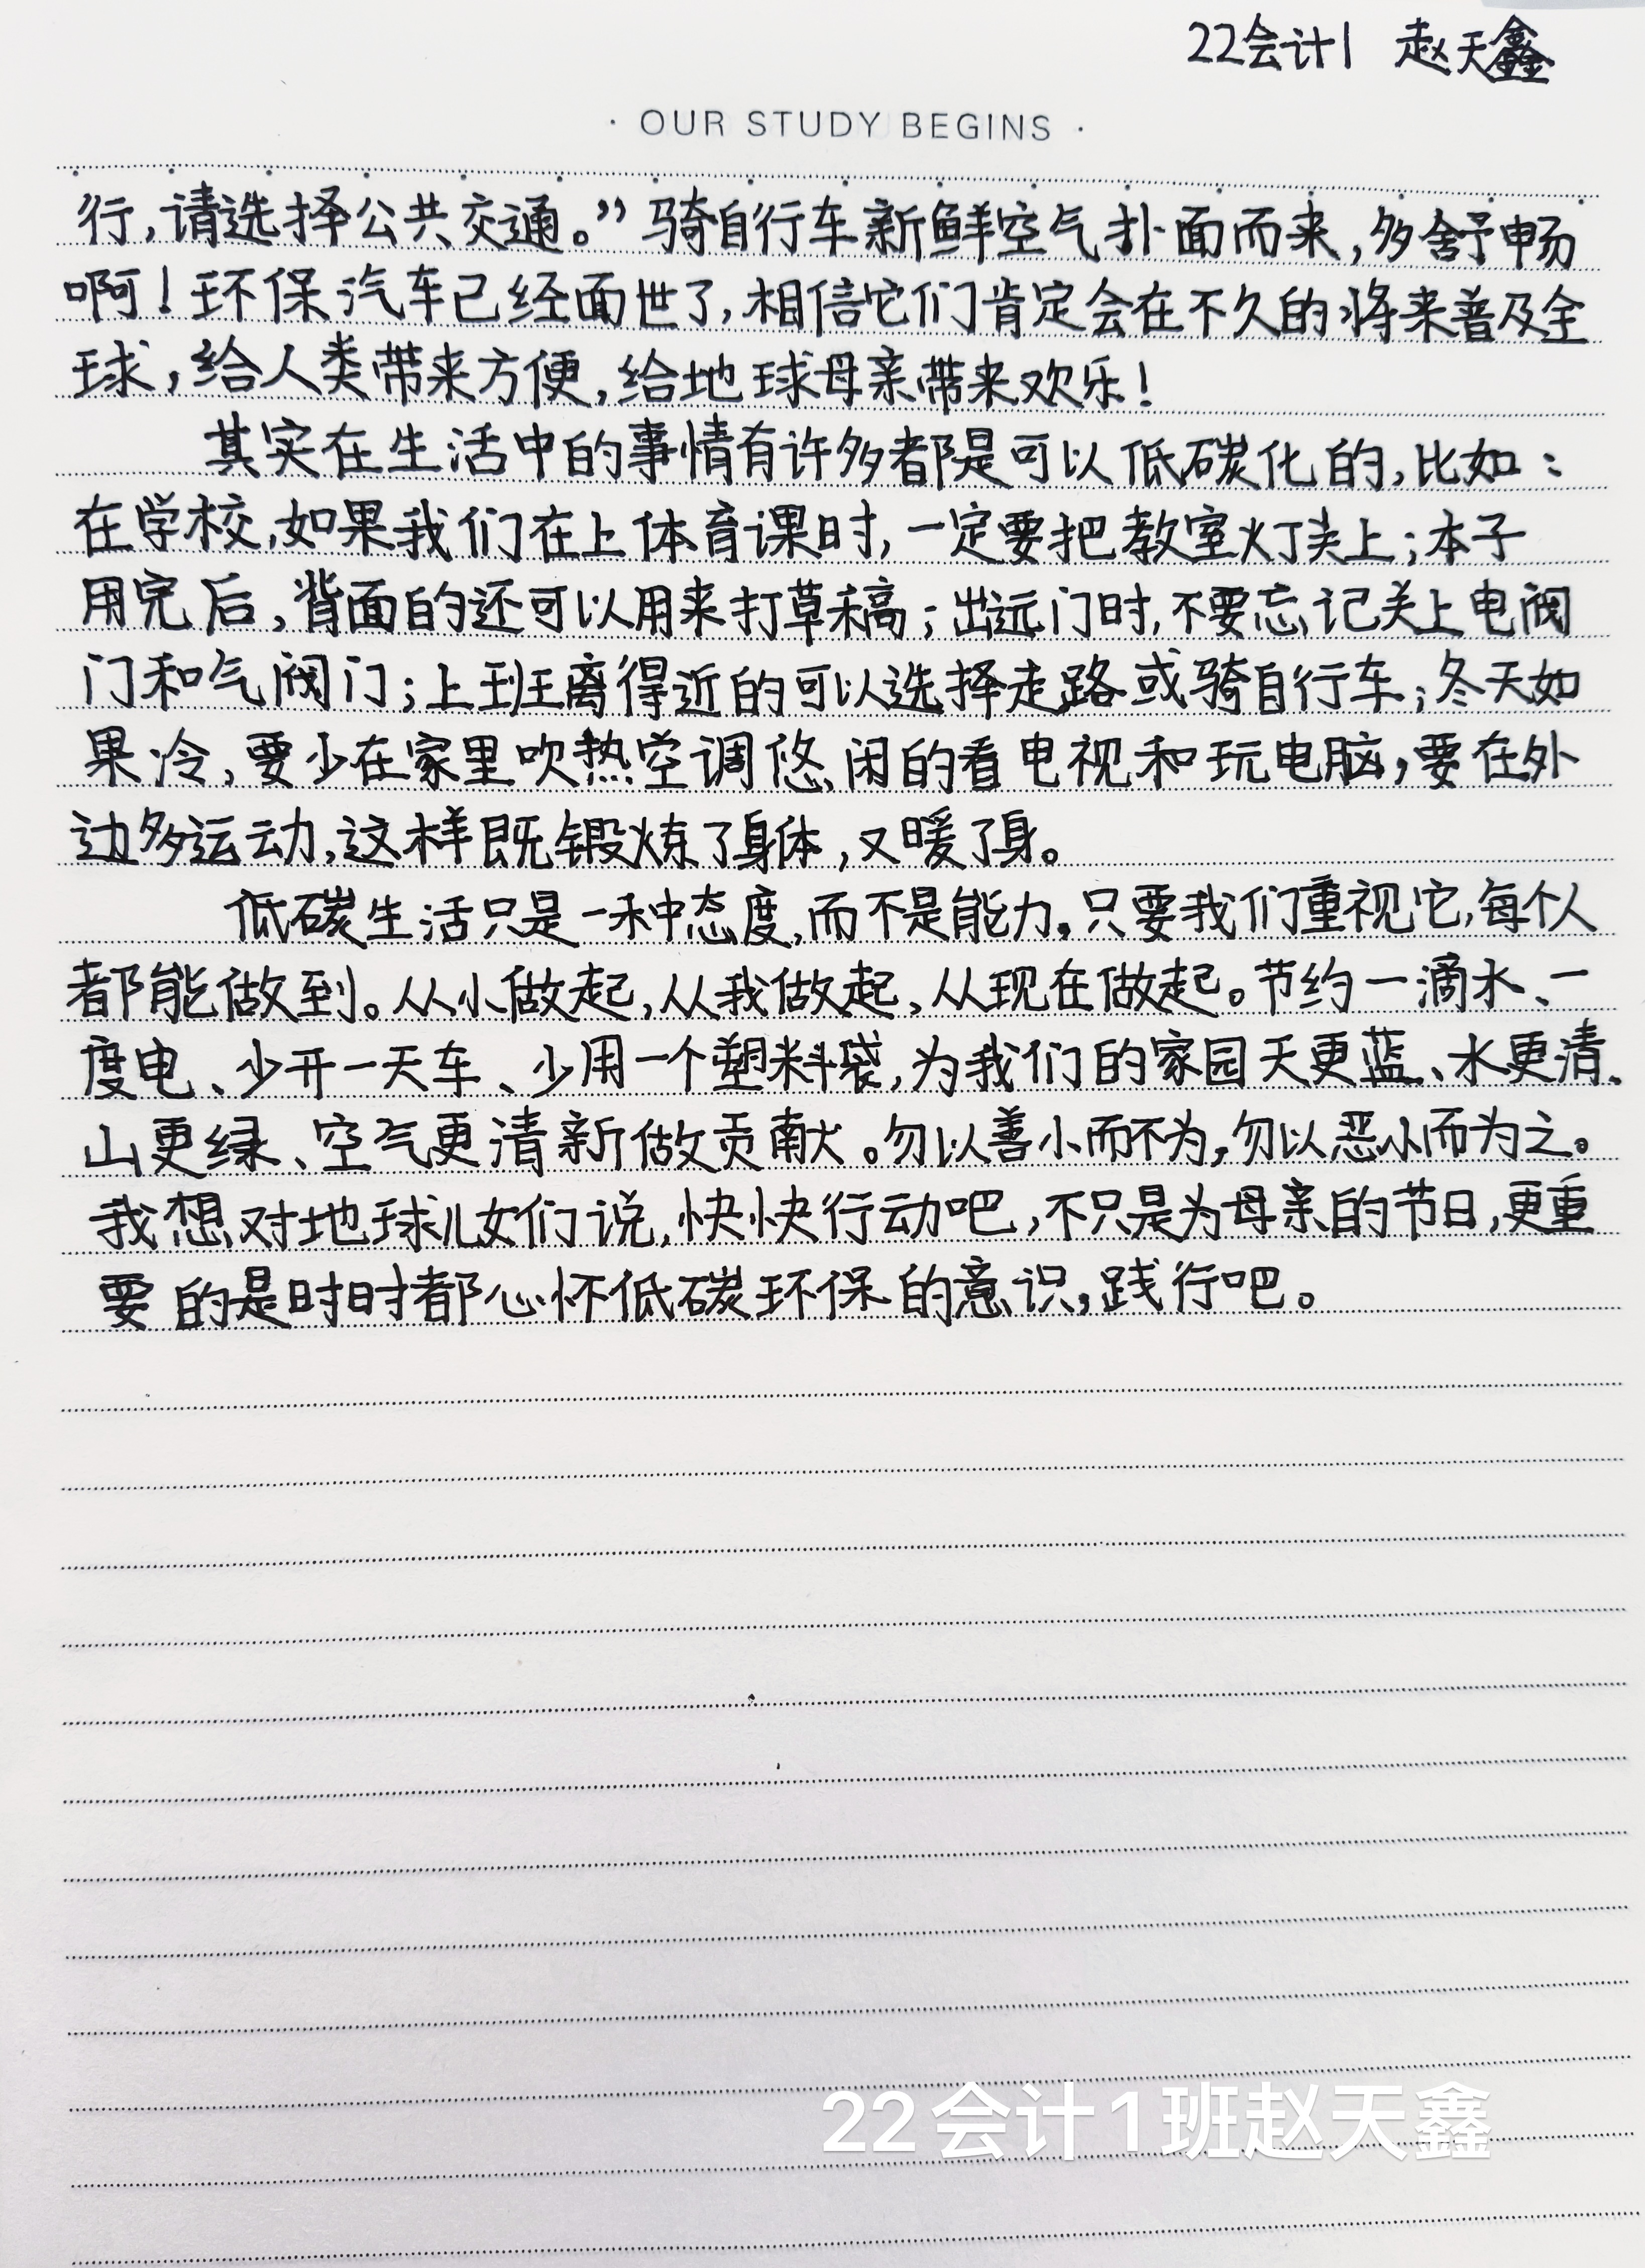 22会计1 赵天鑫
· OUR STUDY BEGINS ·
行,请选择公共交通。”骑自行车新鲜空气扑面而来,多舒畅
啊!环保汽车已经面世了,相信它们肯定会在不久的将来普及全
球,给人类带来方便,给地球母亲带来欢乐!
其实在生活中的事情有许多都是可以低碳化的,比如:
在学校,如果我们在上体育课时,一定要把教室灯关上;本子
用完后,背面的还可以用来打草稿;出远门时,不要忘记关上电阀
门和气阀门;上班离得近的可以选择走路或骑自行车;冬天如
果冷,要少在家里吹热空调悠闲的看电视和玩电脑,要在外
边多运动,这样既锻炼了身体,又暖了身。
低碳生活只是一种态度,而不是能力。只要我们重视它,每个人
都能做到。从小做起,从我做起,从现在做起。节约一滴水、一
度电、少开一天车、少用一个塑料袋,为我们的家园天更蓝、水更清、
山更绿、空气更清新做贡献。勿以善小而不为,勿以恶小而为之。
我想对地球儿女们说,快快行动吧,不只是为母亲的节日,更重
要的是时时都心怀低碳环保的意识,践行吧。
22会计1班赵天鑫